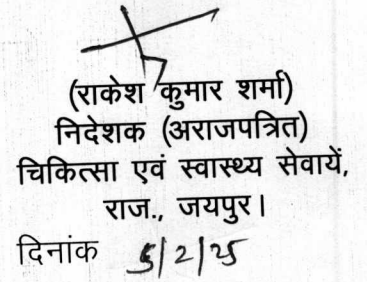 (राकेश कुमार शर्मा)
निदेशक (अराजपत्रित)
चिकित्सा एवं स्वास्थ्य सेवायें,
राज., जयपुर।
दिनांक 5/2/25